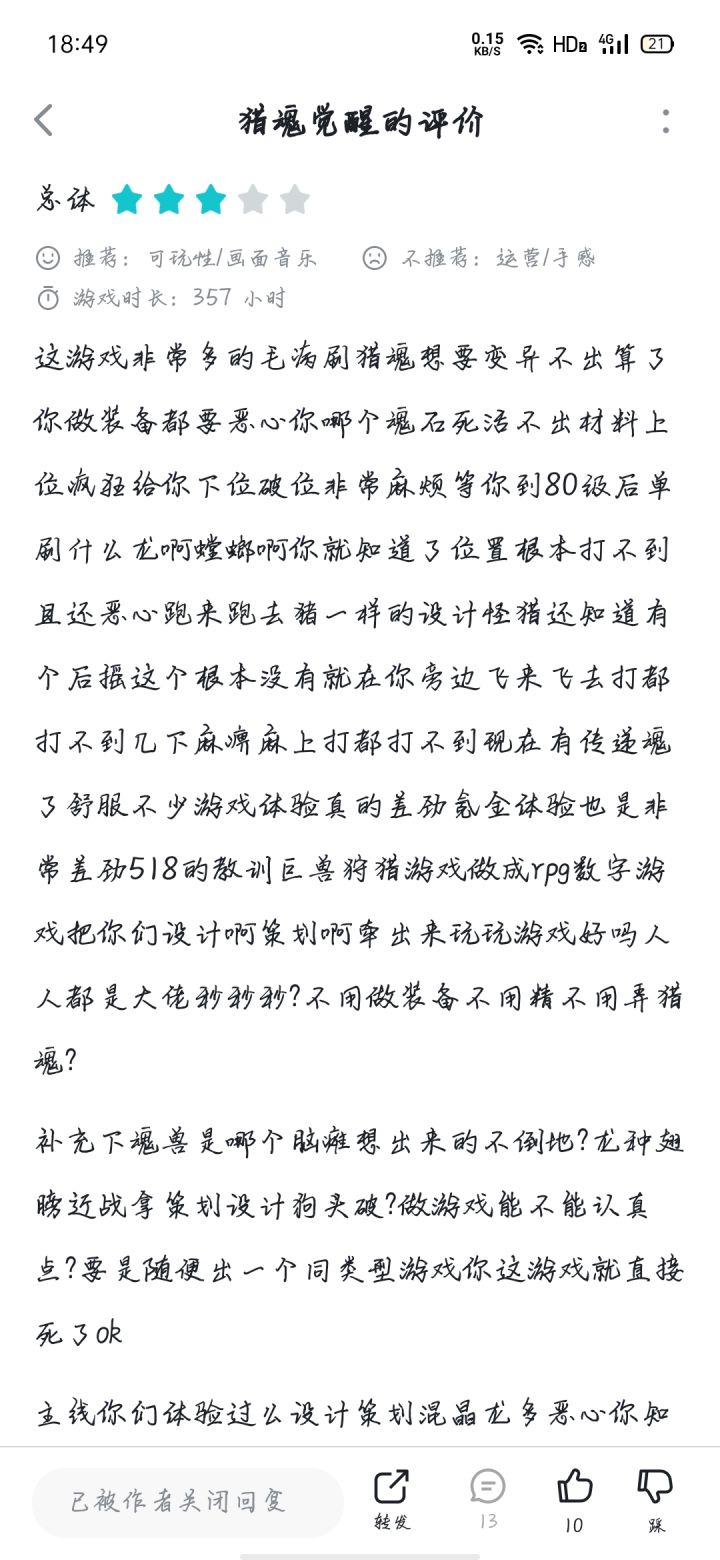 18:49
0.15 KB/S HD2 4G 21
猎魂觉醒的评价
总体
推荐：可玩性/画面音乐 不推荐：运营/手感
游戏时长：357 小时
这游戏非常多的毛病刷猎魂想要变异不出算了
你做装备都要恶心你哪个魂石死活不出材料上
位疯狂给你下位破位非常麻烦等你到80级后单
刷什么龙啊螳螂啊你就知道了位置根本打不到
且还恶心跑来跑去猪一样的设计怪猎还知道有
个后摇这个根本没有就在你旁边飞来飞去打都
打不到几下麻痹麻上打都打不到现在有传递魂
了舒服不少游戏体验真的差劲氪金体验也是非
常差劲518的教训巨兽狩猎游戏做成rpg数字游
戏把你们设计啊策划啊牵出来玩玩游戏好吗人
人都是大佬秒秒秒?不用做装备不用精不用弄猎
魂?
补充下魂兽是哪个脑瘫想出来的不倒地?龙种翅
膀近战拿策划设计狗头破?做游戏能不能认真
点?要是随便出一个同类型游戏你这游戏就直接
死了ok
主线你们体验过么设计策划混晶龙多恶心你知
已被作者关闭回复
转发 13 10 踩